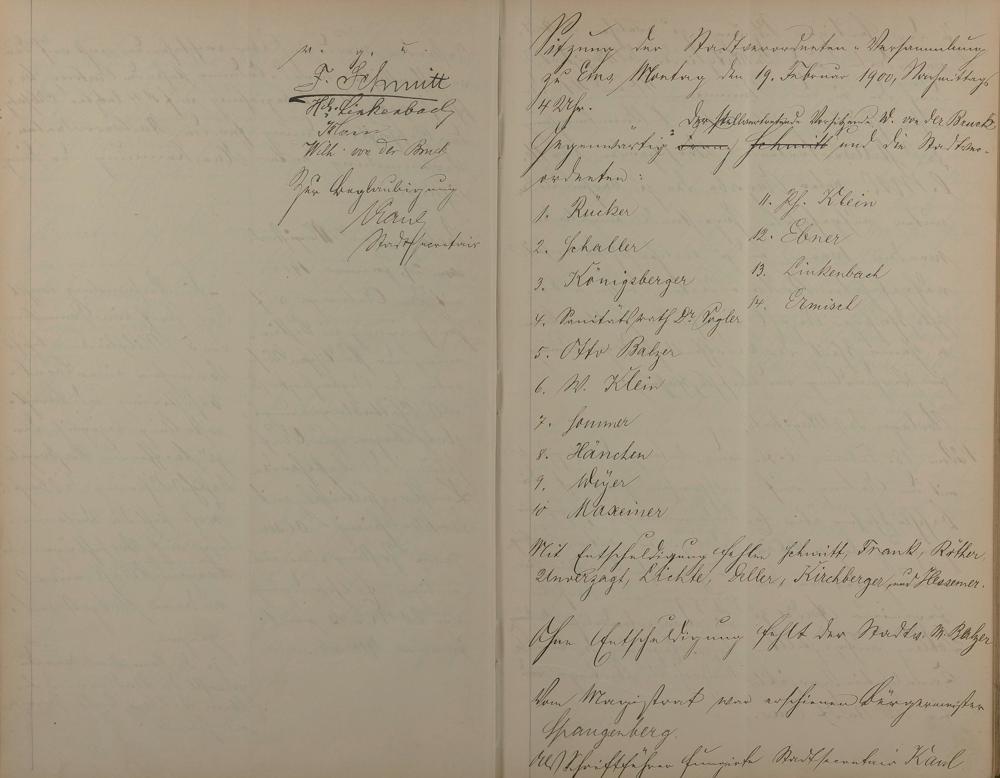 v. g. u.
F. Schmitt
Hch. Linkenbach
Klein
Wilh. von der Bruck
Zur Beglaubigung
Kaul
Stadtsecretair
Sitzung der Stadtverordneten-Versammlung
zu Ems Montag den 19. Februar 1900, Nachmittags
4 Uhr.
Der stellvertretende Vorsitzende W. von der Bruck
Gegenwärtig: Franz Schmitt und die Stadtver-
ordneten:
1. Rücker
2. Schaller
3. Königsberger
4. Sanitätsrath Dr. Vogler
5. Otto Balzer
6. W. Klein
7. Sommer
8. Hänchen
9. Weyer
10 Maxeiner
11. Ph. Klein
12. Ebner
13. Linkenbach
14. Ermisch
Mit Entschuldigung fehlen Schmitt, Frank, Röther,
Unverzagt, Lichte, Eller, Kirchberger und Hessemer.
Ohne Entschuldigung fehlt der Stadtv. M. Balzer
Vom Magistrat war erschienen Bürgermeister
Spangenberg.
Als Schriftführer fungirte Stadtsecretair Kaul